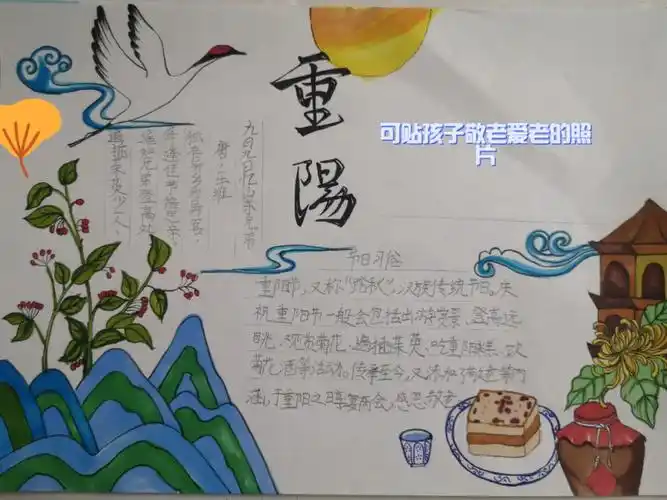 重陽
可贴孩子敬老爱老的照
片
九月九日忆山东兄弟
唐：王维
独在异乡为异客，
每逢佳节倍思亲，
遥知兄弟登高处
遍插茱萸少一人，
节日习俗
重阳节，又称"踏秋"，汉族传统节日。庆
祝重阳节一般会包括出游赏景、登高远
眺、观赏菊花、遍插茱萸、吃重阳糕、饮
菊花酒等活动。传承至今，又添加了敬老等内
涵，于重阳之日享宴高会，感恩敬老